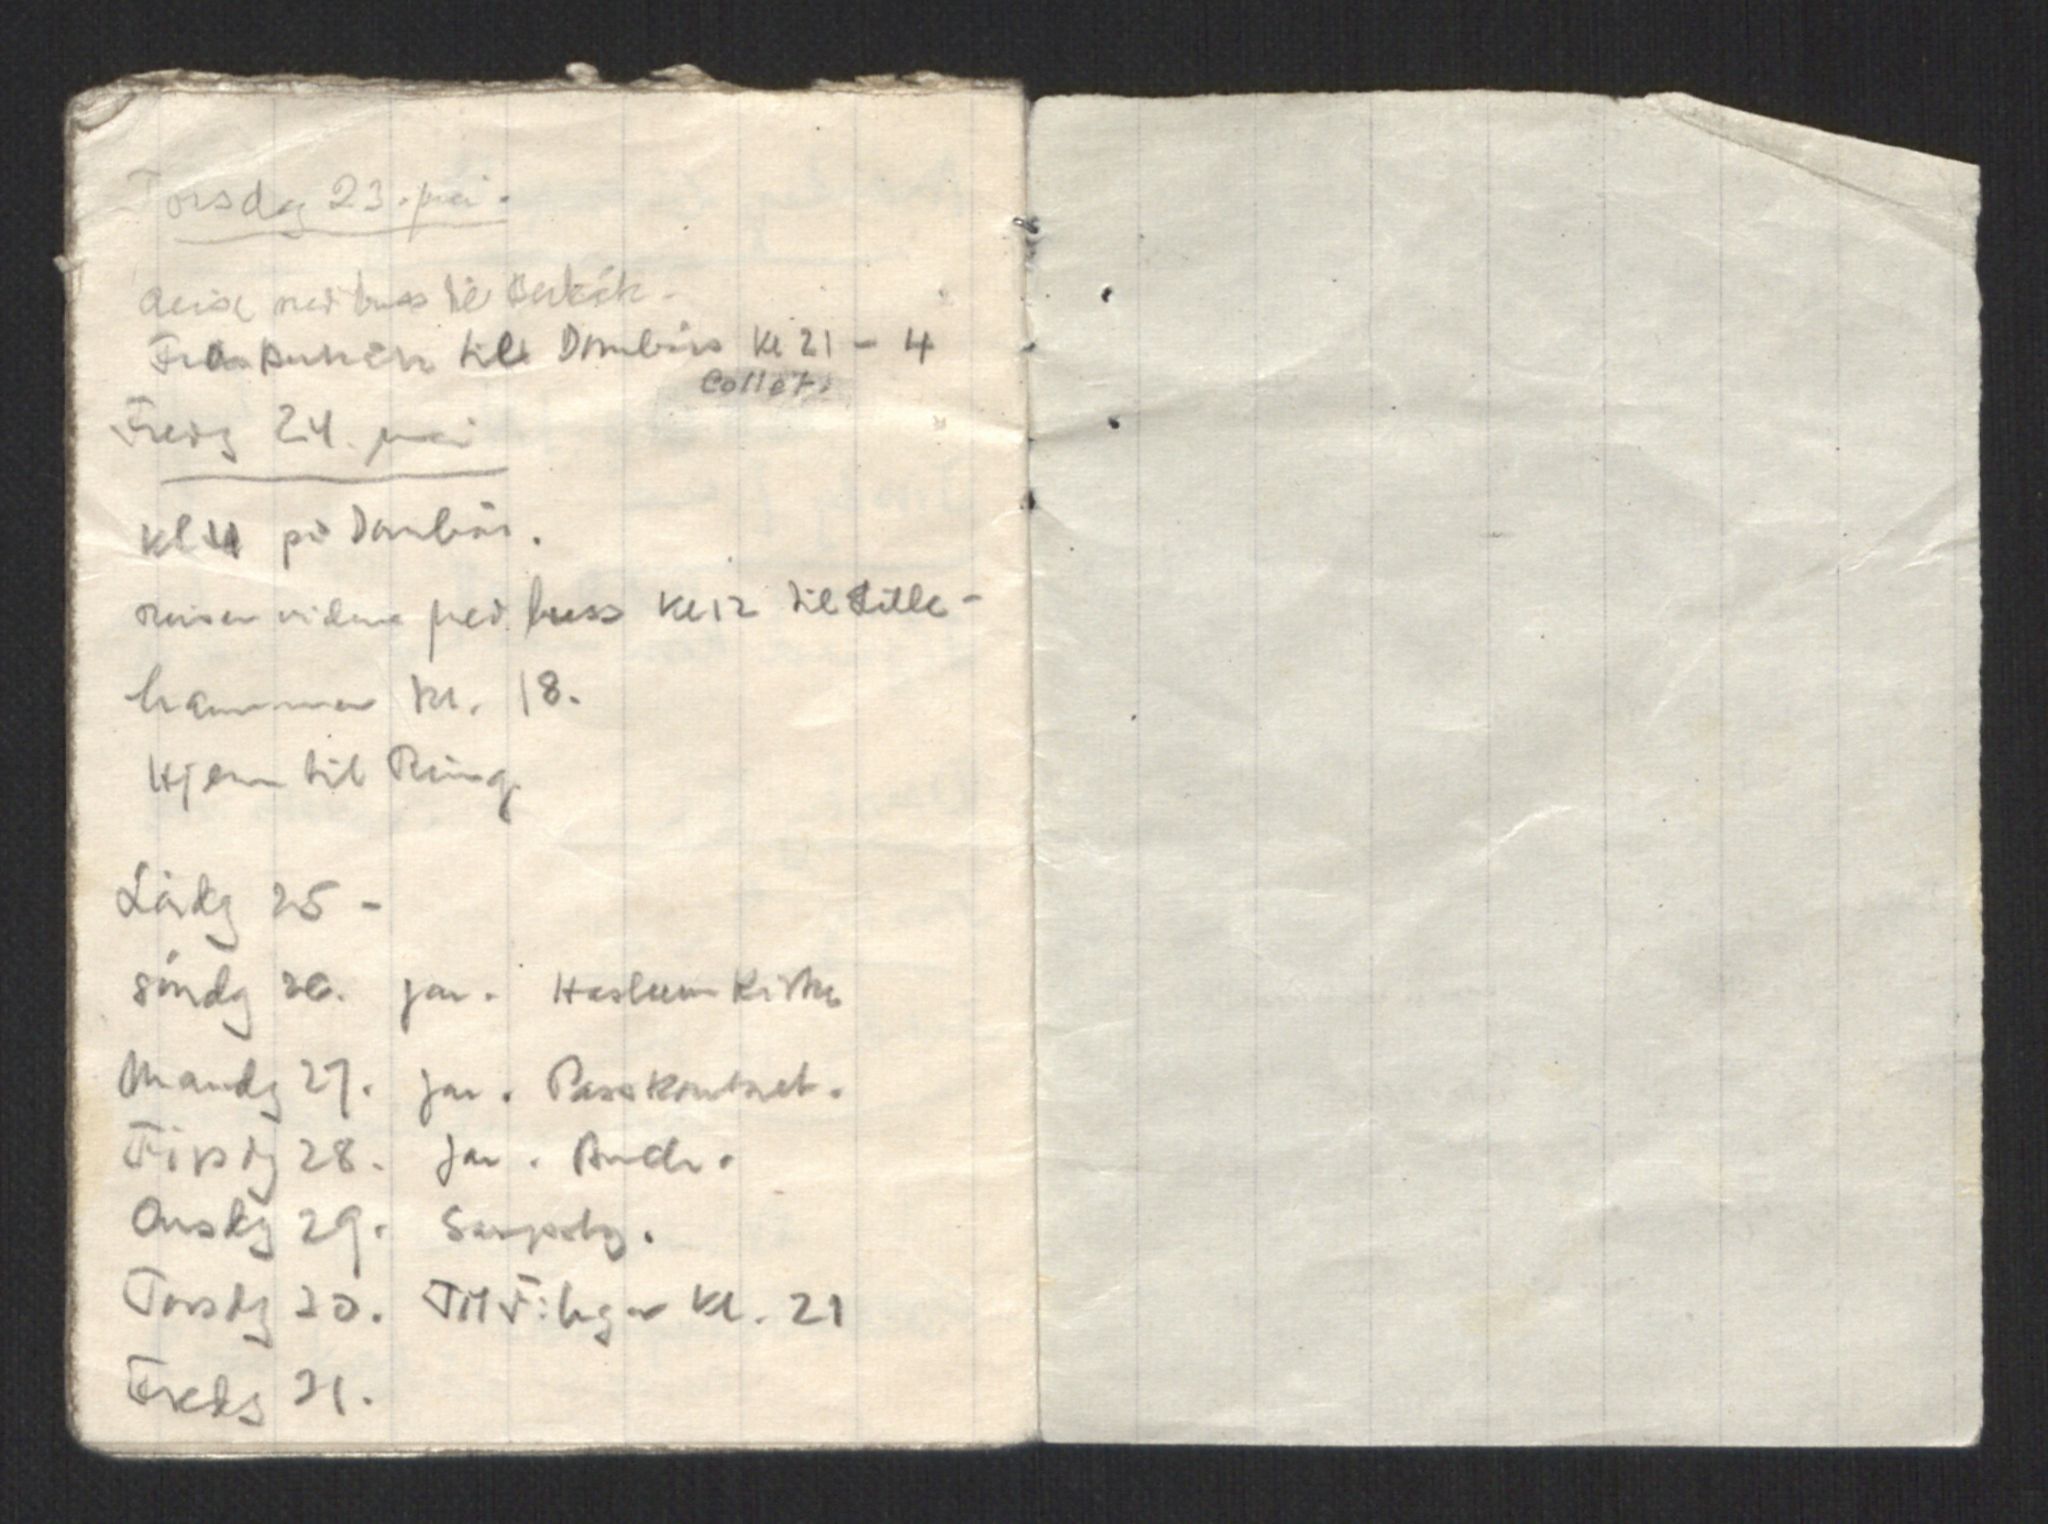 Torsdag 23. mai.
Reise med buss til Berkåk.
Fra Berkåk til Dombås kl 21 - 4
Collet.
Fredg 24. mai
kl 4 på Dombås.
reiser videre med buss kl 12 til Lille-
hammer kl. 18.
Hjem til Ring.
Lördg 25 -
Söndg 26. jar. Haslum Kirke
Mandg 27. jar. Passkontret.
Tirsdg 28. jar.
Onsdg 29. Sarpsbg.
Torsdg 30. Til kl. 21
Fredg 31.